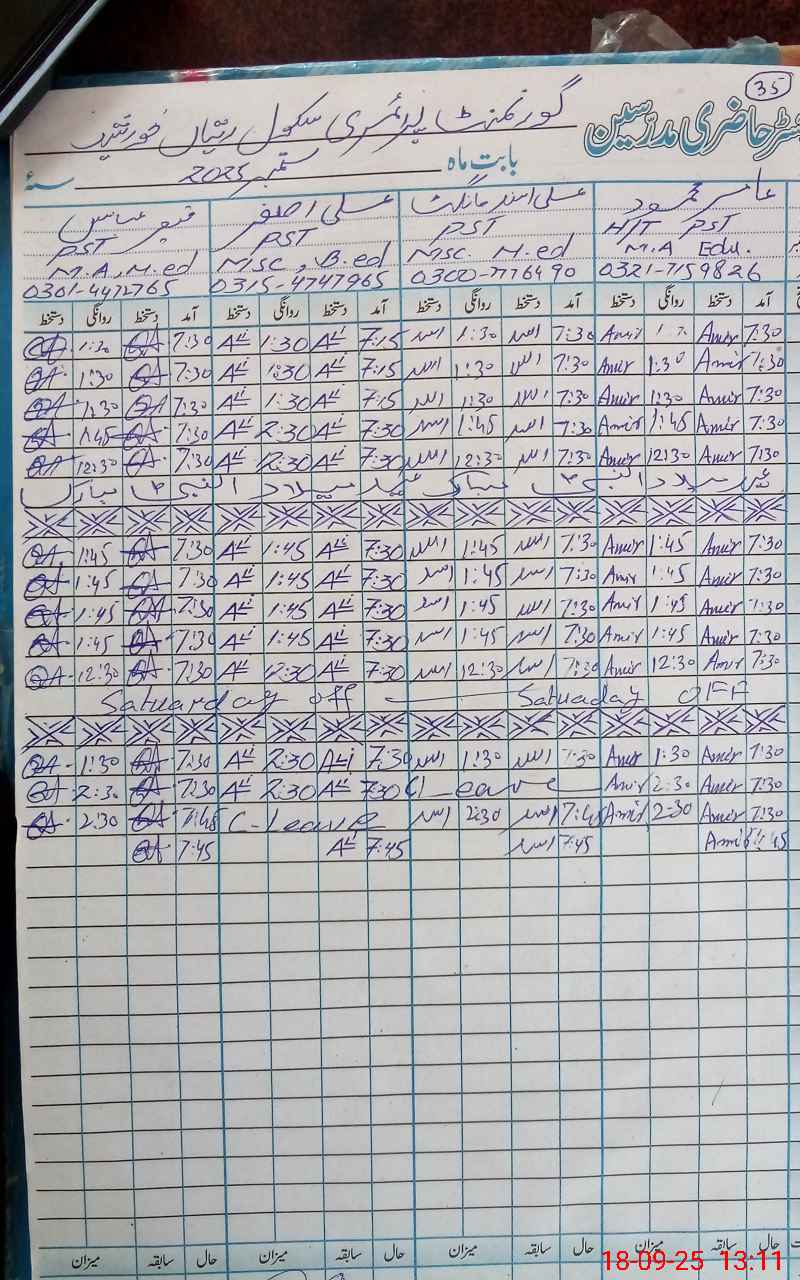 35
رجسٹر حاضری مدرسین
گورنمنٹ پرائمری سکول
بابت ماہ ستمبر 2025 سنۂ
عامر محمود علی اصغر قیصر عباس
HT PST PST PST PST
M.A Edu. Msc. M.ed Msc, B.ed M.A, M.ed
0321-7159826 0300-7776490 0315-4747965 0301-4472765
آمد دستخط روانگی دستخط آمد دستخط روانگی دستخط آمد دستخط روانگی دستخط آمد دستخط روانگی دستخط
7:30 Amir Amir 7:30 اسد 1:30 اسد 7:15 Ali 1:30 Ali 7:30 QA 1:30 QA
7:30 Amir 1:30 Amir 7:30 اسد 1:30 اسد 7:15 Ali 1:30 Ali 7:30 QA 1:30 QA
7:30 Amir 1:30 Amir 7:30 اسد 1:30 اسد 7:15 Ali 1:30 Ali 7:30 QA 1:30 QA
7:30 Amir 1:45 Amir 7:30 اسد 1:45 اسد 7:30 Ali 2:30 Ali 7:30 QA 1:45 QA
7:30 Amir 12:30 Amir 7:30 اسد 12:30 اسد 7:30 Ali 12:30 Ali 7:30 QA 12:30 QA
عید میلاد النبی ؐ مبارک عید میلاد النبی ؐ مبارک
7:30 Amir 1:45 Amir 7:30 اسد 1:45 اسد 7:30 Ali 1:45 Ali 7:30 QA 1:45 QA
7:30 Amir 1:45 Amir 7:30 اسد 1:45 اسد 7:30 Ali 1:45 Ali 7:30 QA 1:45 QA
7:30 Amir 1:45 Amir 7:30 اسد 1:45 اسد 7:30 Ali 1:45 Ali 7:30 QA 1:45 QA
7:30 Amir 1:45 Amir 7:30 اسد 1:45 اسد 7:30 Ali 1:45 Ali 7:30 QA 1:45 QA
7:30 Amir 12:30 Amir 7:30 اسد 12:30 اسد 7:30 Ali 12:30 Ali 7:30 QA 12:30 QA
Satuarday off Satuaday OFF
7:30 Amir 1:30 Amir 7:30 اسد 1:30 اسد 7:30 Ali 2:30 Ali 7:30 QA 1:30 QA
7:30 Amir 2:30 Amir C-Leave 7:30 Ali 2:30 Ali 7:30 QA 2:30 QA
7:30 Amir 2:30 Amir 7:45 اسد 2:30 اسد C-Leave 7:45 QA 2:30 QA
7:45 Amir 7:45 اسد 7:45 Ali 7:45 QA
حال سابقہ میزان حال سابقہ میزان حال سابقہ میزان حال سابقہ میزان
18-09-25 13:11